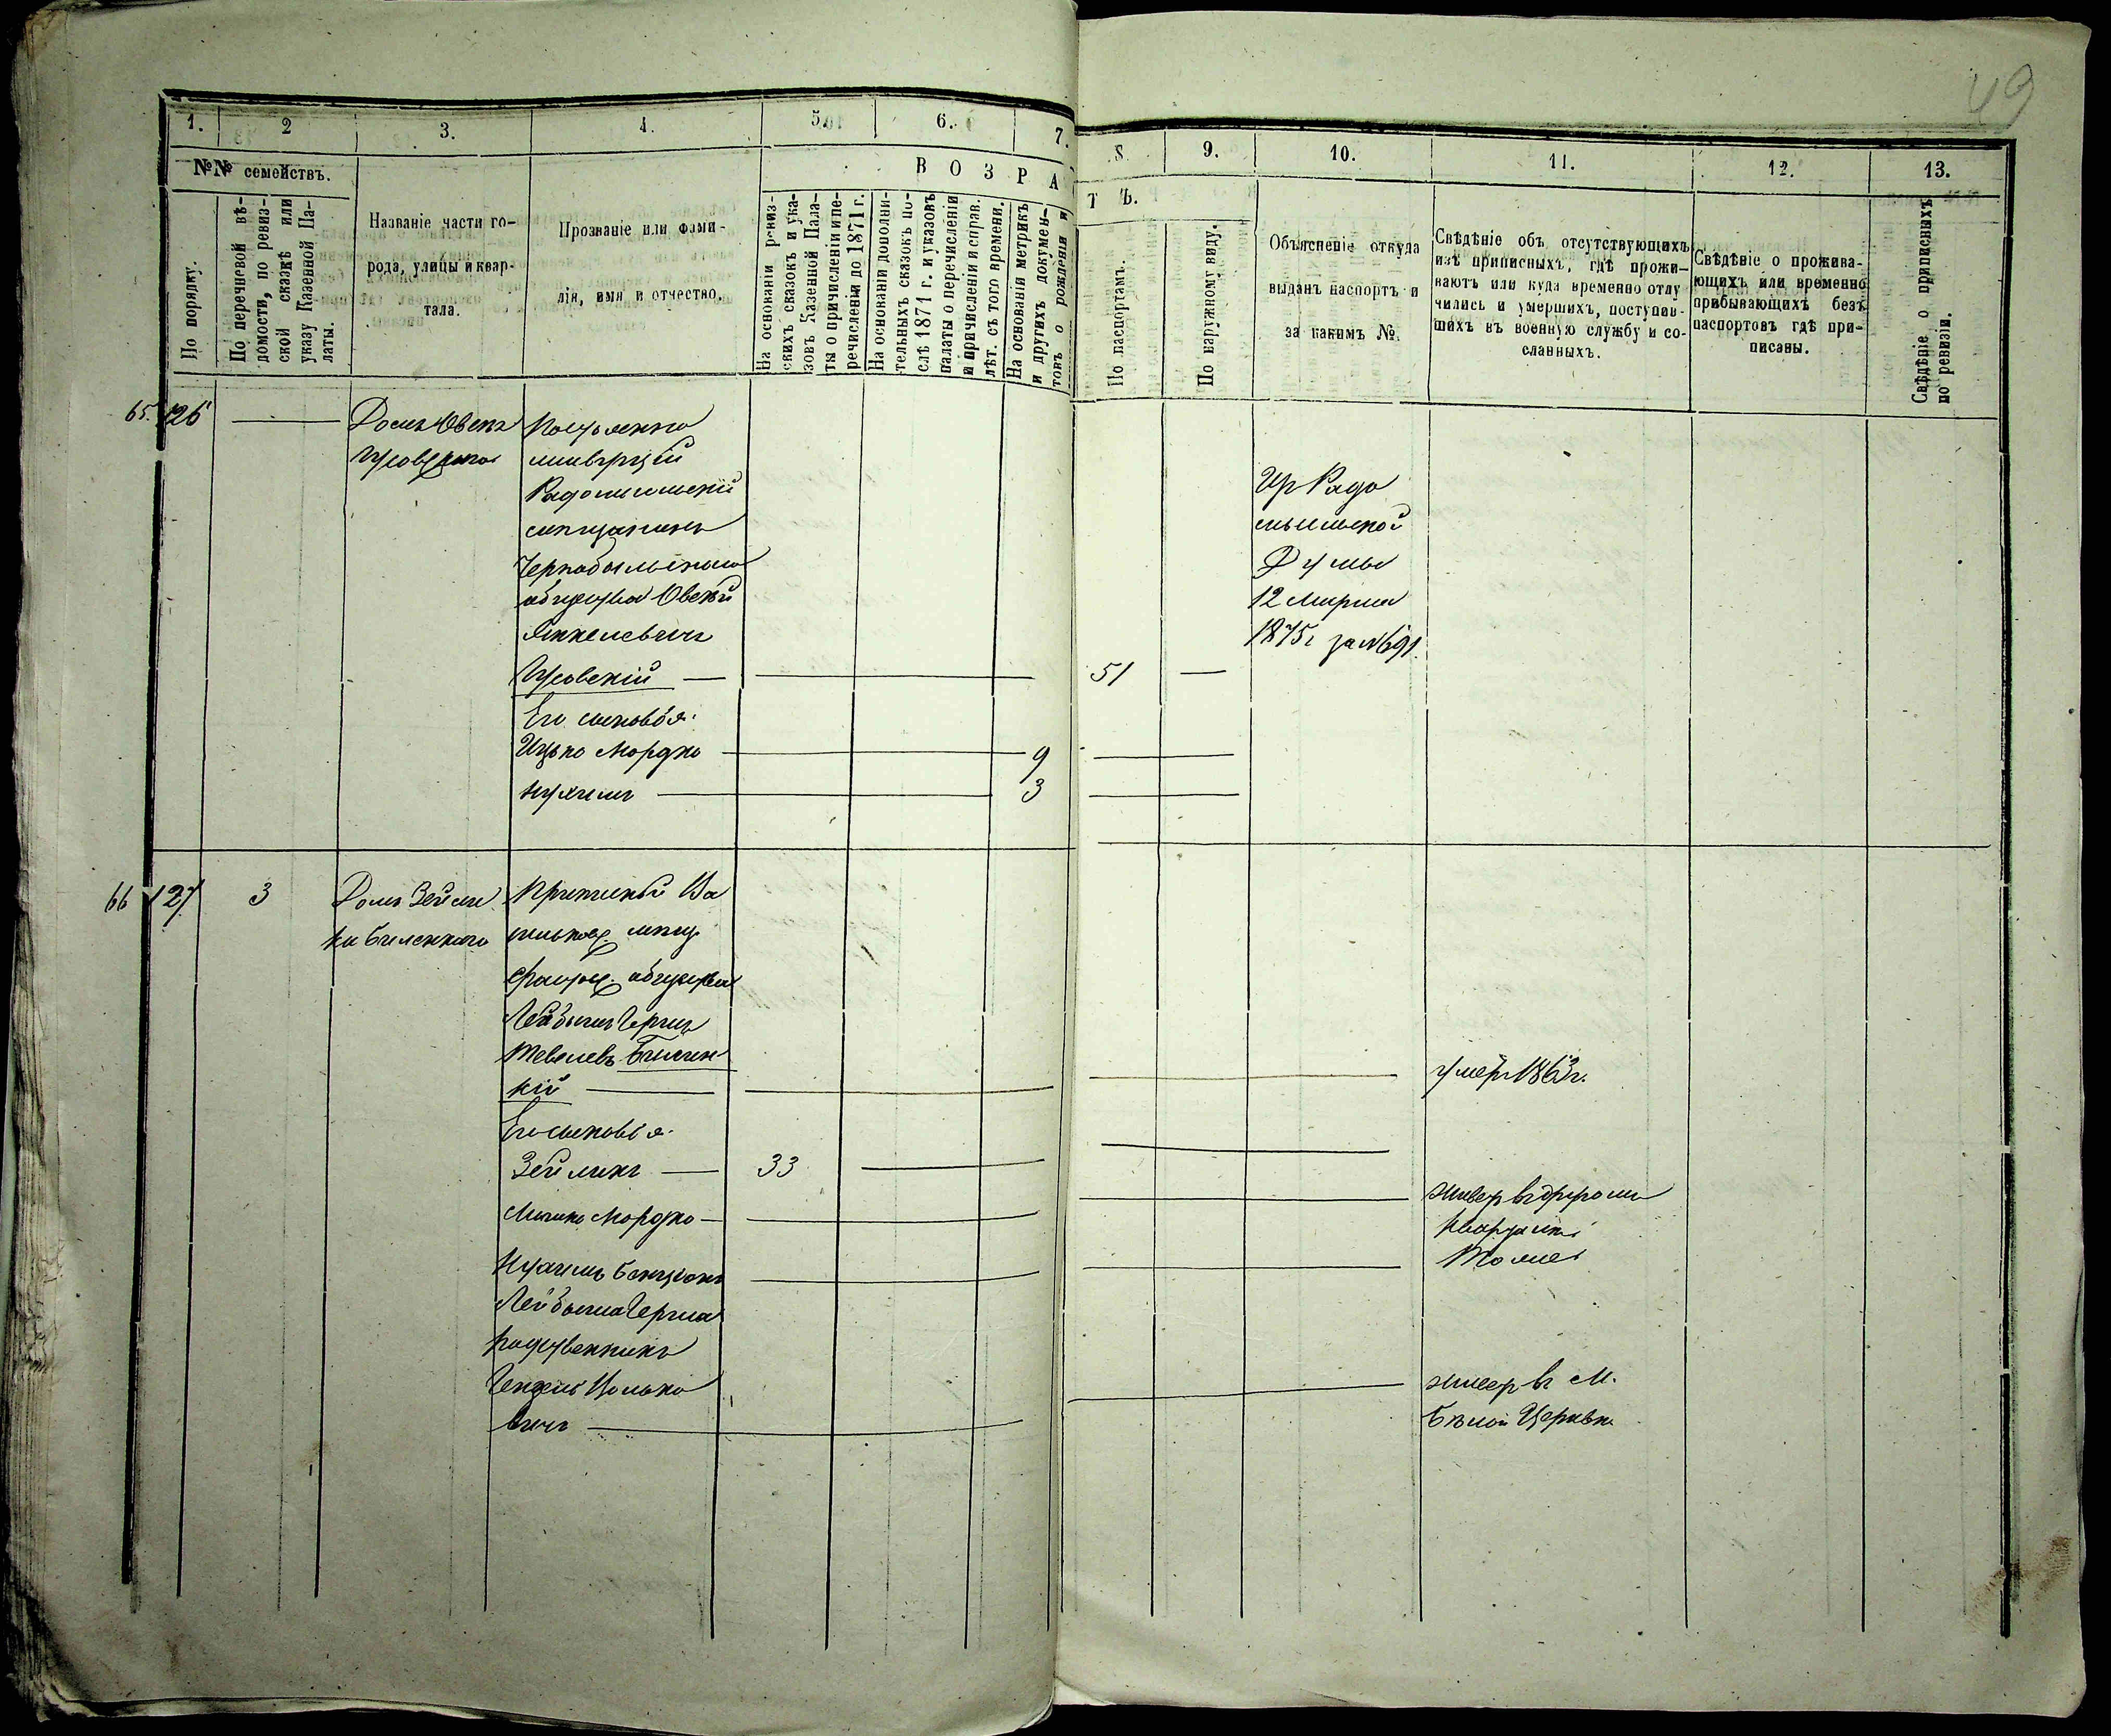 49
1. 2 3. 4. 5. 6. 7. 8. 9. 10. 11. 12. 13.
№№ семействъ.
По порядку.
По перечневой вѣ-
домости, по ревиз-
ской сказкѣ или
указу Казенной Па-
латы.
Названіе части го-
рода, улицы и квар-
тала.
Прозваніе или фами-
лія, имя и отчество.
ВОЗРАТЪ.
На основаніи ревиз-
скихъ сказокъ и ука-
зовъ Казенной Пала-
ты о причисленіи и пе-
речисленіи до 1871 г.
На основаніи дополни-
тельныхъ сказокъ по-
слѣ 1871 г. и указовъ
палаты о перечисленіи
и причисленіи и справ.
лѣт. съ того времени.
На основаніи метрикъ
и другихъ докумен-
товъ о рожденіи и
По паспортамъ.
По наружному виду.
Объясненіе откуда
выданъ паспортъ и
за какимъ №.
Свѣдѣніе объ отсутствующихъ
изъ приписныхъ, гдѣ прожи-
ваютъ или куда временно отлу
чились и умершихъ, поступив-
шихъ въ военную службу и со-
сланныхъ.
Свѣдѣніе о прожива-
ющихъ или временно
прибывающихъ безъ
паспортовъ гдѣ при-
писаны.
Свѣдѣніе о приписныхъ
по ревизіи.
65. 126 Домъ Овсея
Усовскаго
Постоянно
живущій
Радомысльскій
мещанинъ
Чернобыльскаго
общества Овсей
Янкелевичъ
Усовскій 51
Его сыновья
Ицько Мордко 9
Нухимъ 3
Изъ Радо
мысльской
Думы
12 Марта
1875 г за №691.
66 127 3 Домъ Зейли
ка Биленкаго
общества
Тевелевъ Билен
кій умеръ 1863г.
Его сыновья
Зейликъ 33
Мошко Мордко
Нухимъ Бенціонъ
живет въ другомъ
квартале
Тоже
Лейбыша Герша
родственникъ
вичъ
живет въ М.
Белой Церкви